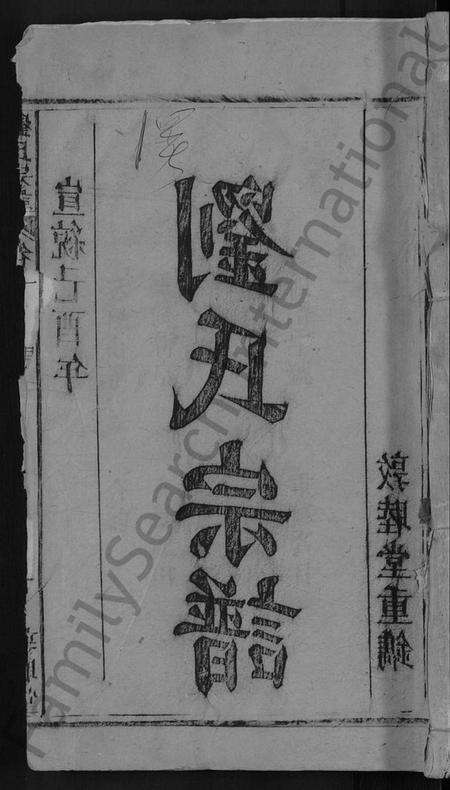 宣統己酉年
劉氏宗譜
敦睦堂重鐫
FamilySearch International